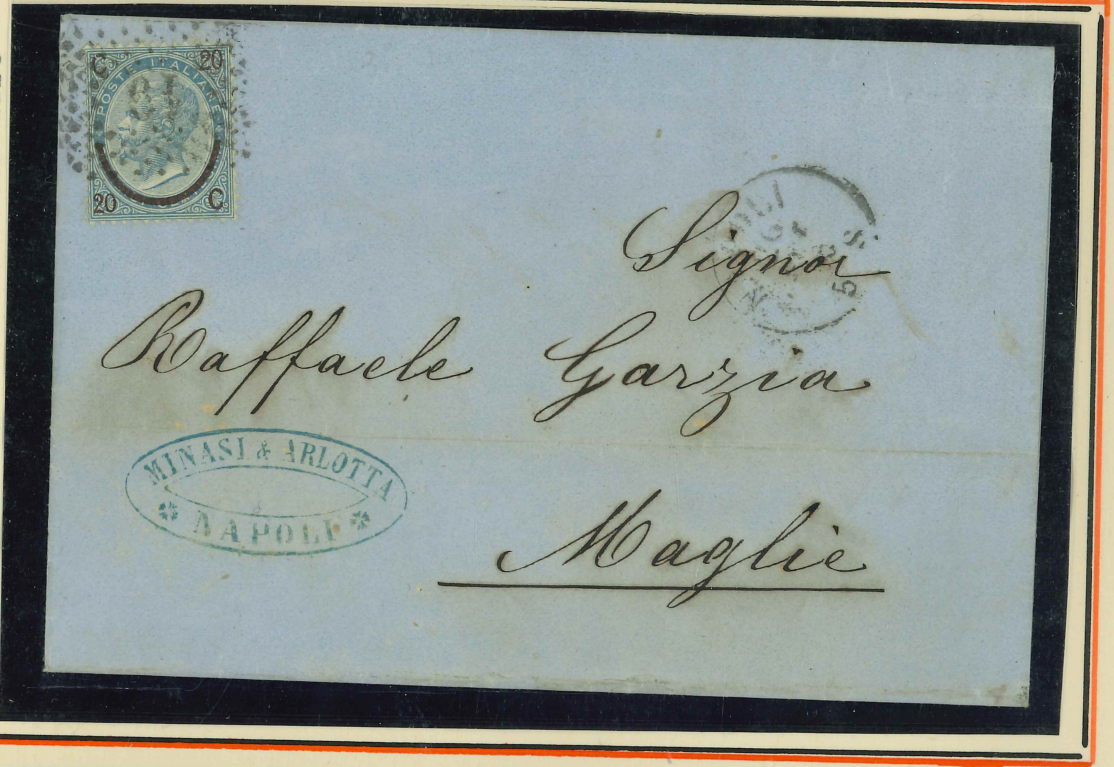 C 20
POSTE ITALIANE
20 C
NAPOLI
Signor
Raffaele Garzia
MINASI & ARLOTTA
NAPOLI
Maglie